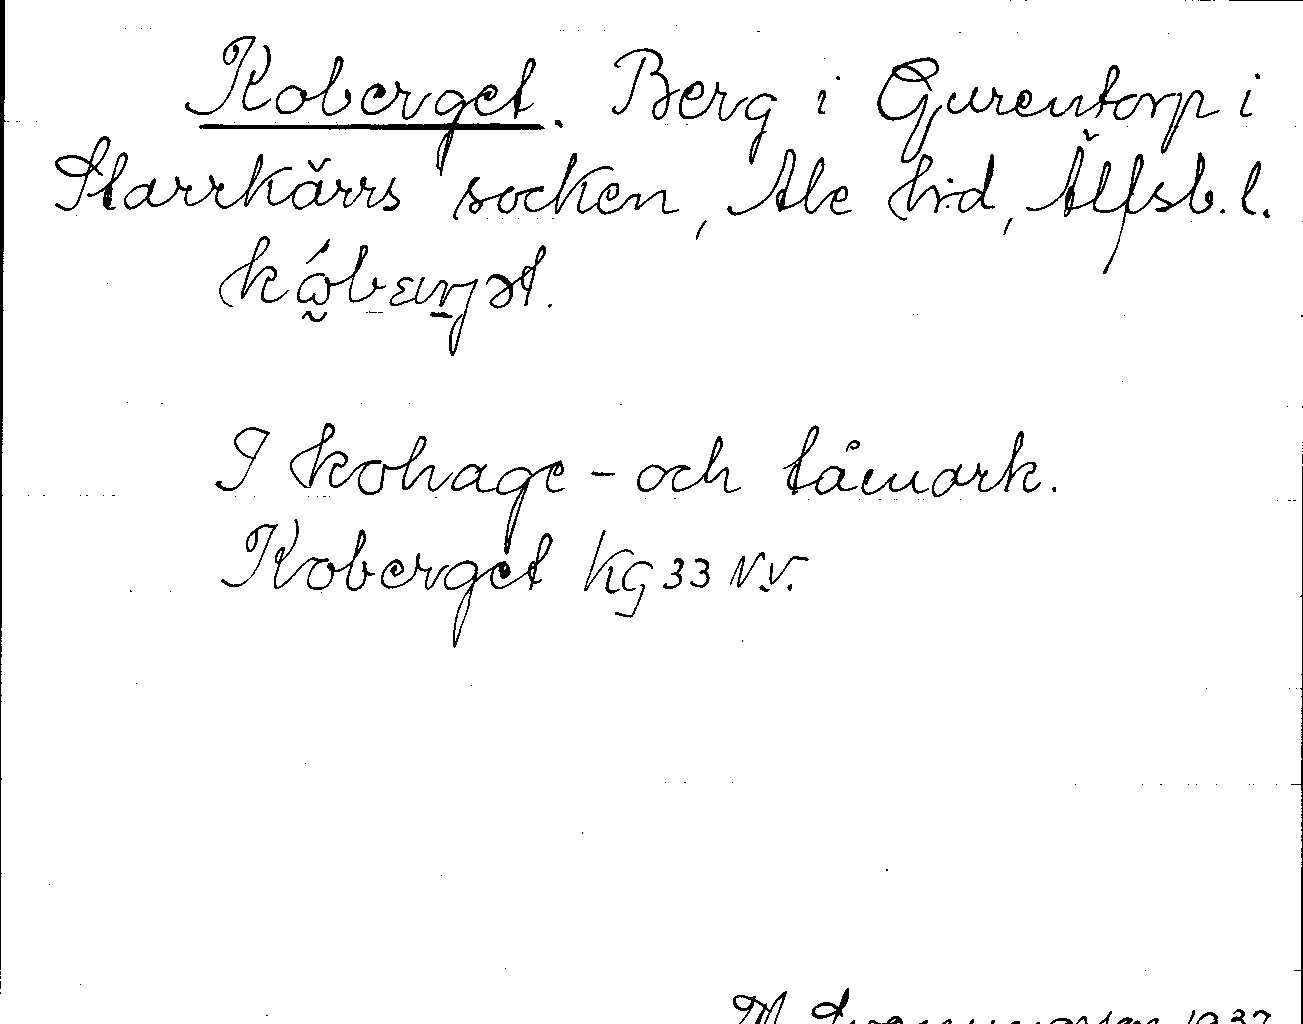 Koberget. Berg i Gurentorp i
Starrkärrs socken, Ale hrd, Älfsb. l.
kώ̰bærjət.
I kohage- och tåmark.
Koberget KG 33 N.V.
M. 1937